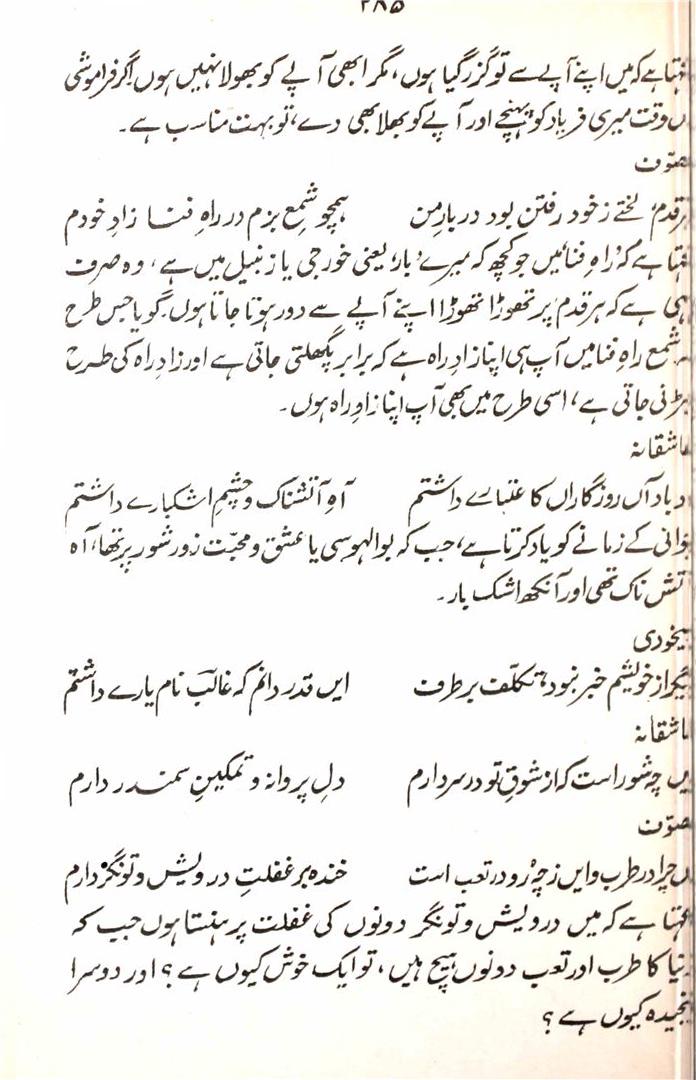 ۲۸۵
ہے کہ میں اپنے آپے سے تو گزر گیا ہوں، مگر ابھی آپے کو بھولا نہیں ہوں۔ اگر فراموشی
وقت میری فریاد کو پہنچے اور آپے کو بھلا بھی دے، تو بہت مناسب ہے۔
قدم، لختے ز خود رفتن بود در بارِ من ہمچو شمعِ بزم در راہِ فنا زادِ خودم
ہے کہ "راہِ فنا" میں جو کچھ کہ میرے "بار" یعنی خورجی یا زنبیل میں ہے، وہ صرف
ہے کہ ہر قدم پر تھوڑا تھوڑا اپنے آپے سے دور ہوتا جاتا ہوں۔ گویا جس طرح
شمع راہِ فنا میں آپ ہی اپنا زادِ راہ ہے کہ برابر پگھلتی جاتی ہے اور زادِ راہ کی طرح
جاتی ہے، اسی طرح میں بھی آپ اپنا زادِ راہ ہوں۔
عاشقانہ
یاد آں روزگاراں کاعتبارے داشتم آہِ آتشناک و چشمِ اشکبارے داشتم
کے زمانے کو یاد کرتا ہے، جب کہ بوالہوسی یا عشق و محبّت زور شور پر تھا، آہ
ناک تھی اور آنکھ اشک بار۔
بیخودی
از خویشم خبر نبود، تکلّف بر طرف ایں قدر دانم کہ غالبؔ نام یارے داشتم
عاشقانہ
چہ شور است کہ از شوقِ تو در سر دارم دلِ پروانہ و تمکینِ سمندر دارم
چرا در طرب و ایں ز چہ رو در تعب است خندہ بر غفلتِ درویش و تونگر دارم
ہے کہ میں درویش و تونگر دونوں کی غفلت پر ہنستا ہوں جب کہ
کا طرب اور تعب دونوں ہیچ ہیں، تو ایک خوش کیوں ہے؟ اور دوسرا
کیوں ہے؟